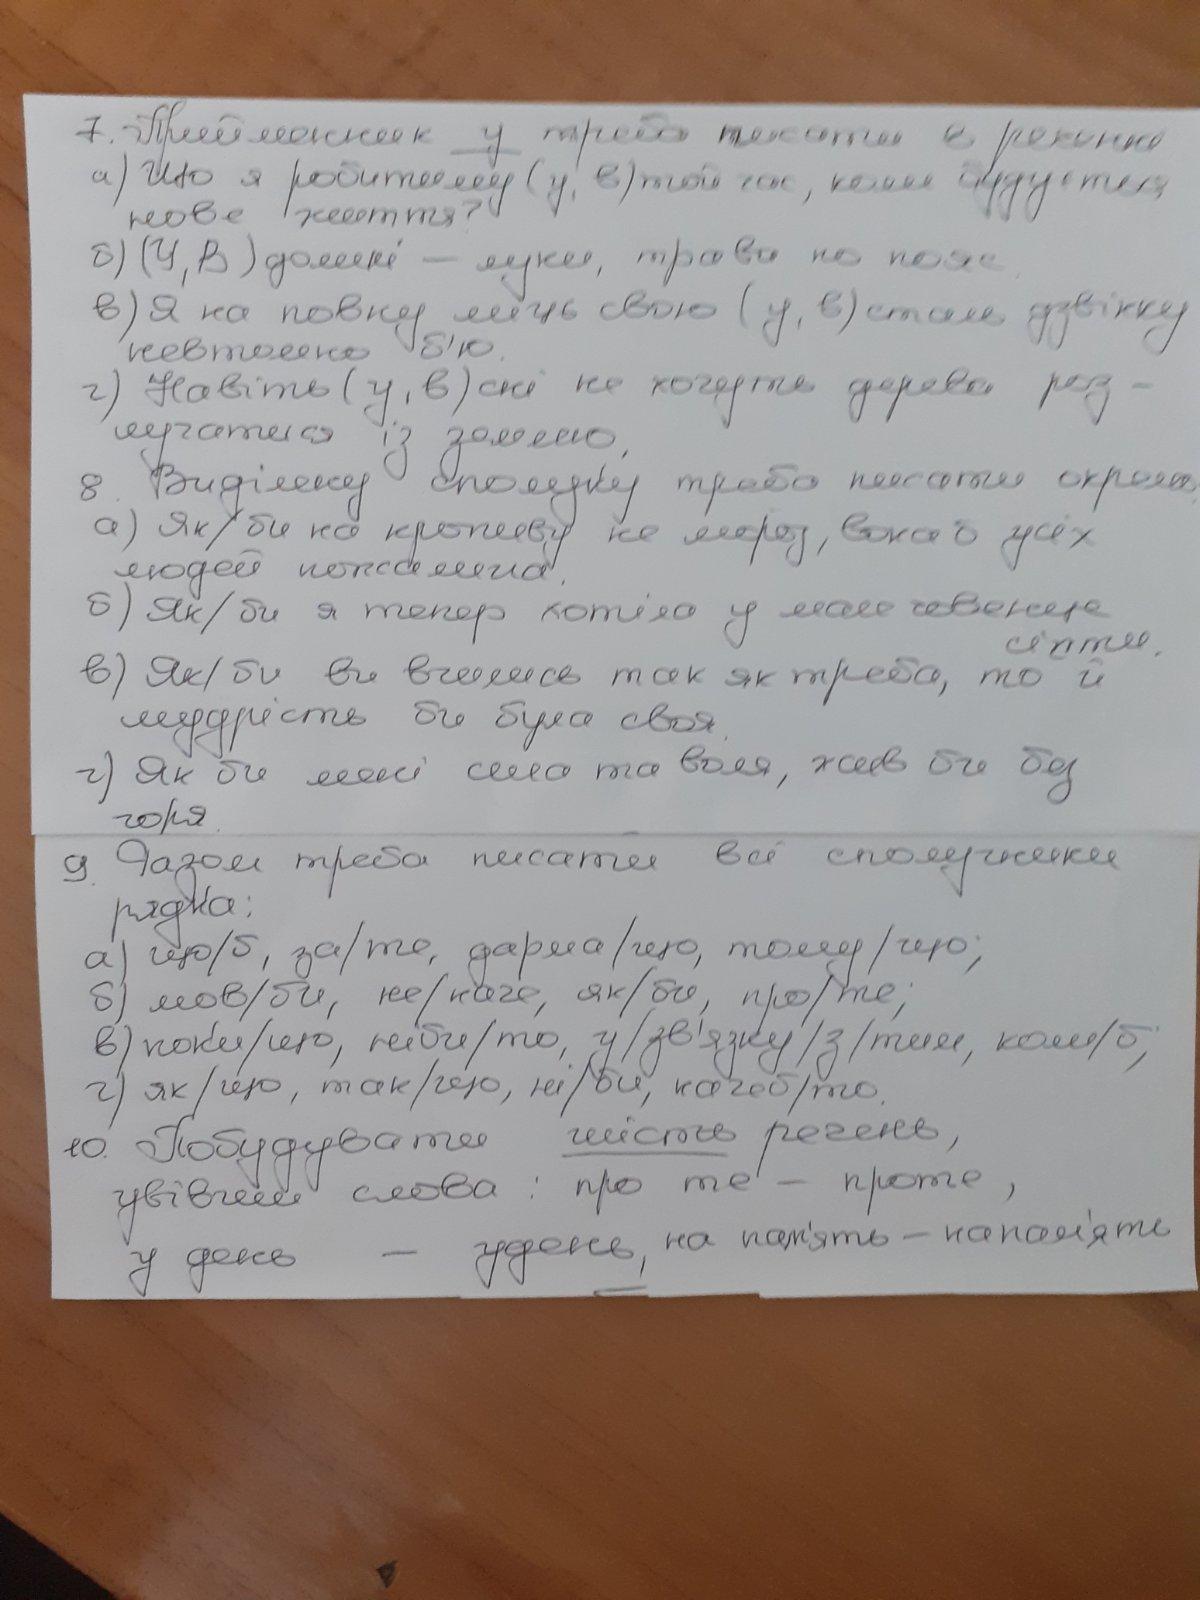 7. Прийменник у треба писати в реченні
а) Що я робитиму (у, в) той час, коли будується
нове життя?
б) (У, В) долині – луки, трава по пояс.
в) Я на повну міць свою (у, в) сталь дзвінку
невтомно б'ю.
г) Навіть (у, в) сні не хочуть дерева роз-
лучатися із землею.
8. Виділену сполуку треба писати окремо
а) Як/би на кропиву не мороз, вона б усіх
людей пожалила.
б) Як/би я тепер хотіла у мале човенце
сісти.
в) Як/би ви вчились так як треба, то й
мудрість би була своя.
г) Як би мені сила та воля, жив би без
горя.
9. Разом треба писати всі сполучники
рядка:
а) що/б, за/те, дарма/що, тому/що;
б) мов/би, не/наче, як/би, про/те;
в) поки/що, ніби/то, у/зв'язку/з/тим, коли/б;
г) як/що, так/що, ні/би, начеб/то.
10. Побудувати шість речень,
увівши слова: про те – проте,
у день – удень, на пам'ять – напам'ять